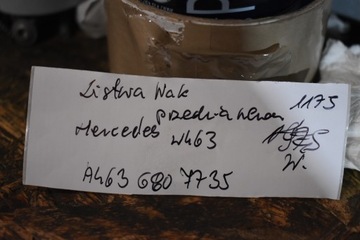 Listwa Wak
przednia lewa 1175
Mercedes W463
W.
A463 680 7735